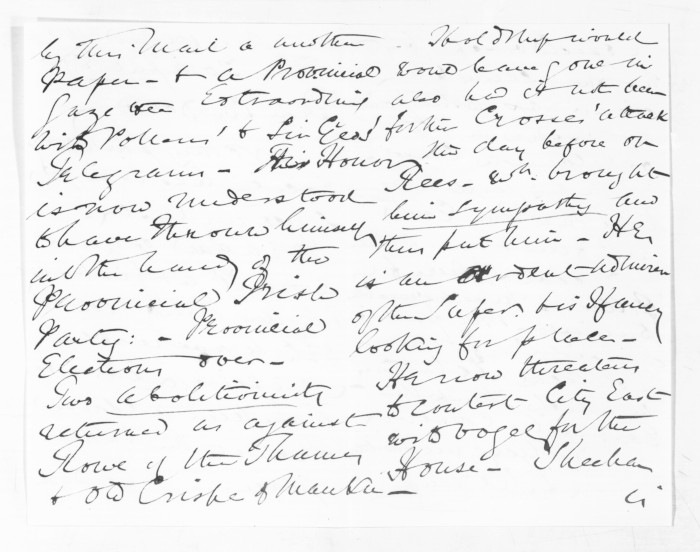 by this Mail a another
Paper - & a Provincial
Gazette Extraordiny
with Pollens' & Sir Geos'
Telegrams - His Honor
is now understood
to have thrown himself
into the hands of the
Provincial Irish
Party: - Provincial
Elections over -
Two abolitionists
returned as against
Rowe of the Thames
& Old Crispe of Manku -
Holdship would
wond have gone in
also had it not been
for Crosier' attack
the day before on
Rees - wh. brought
him sympathy and
thus put him - He
is an ardent admirer
of the Super. & is I fancy
looking for place -
He now threatens
to contest City East
with Vogel for the
House - Sheehan
is